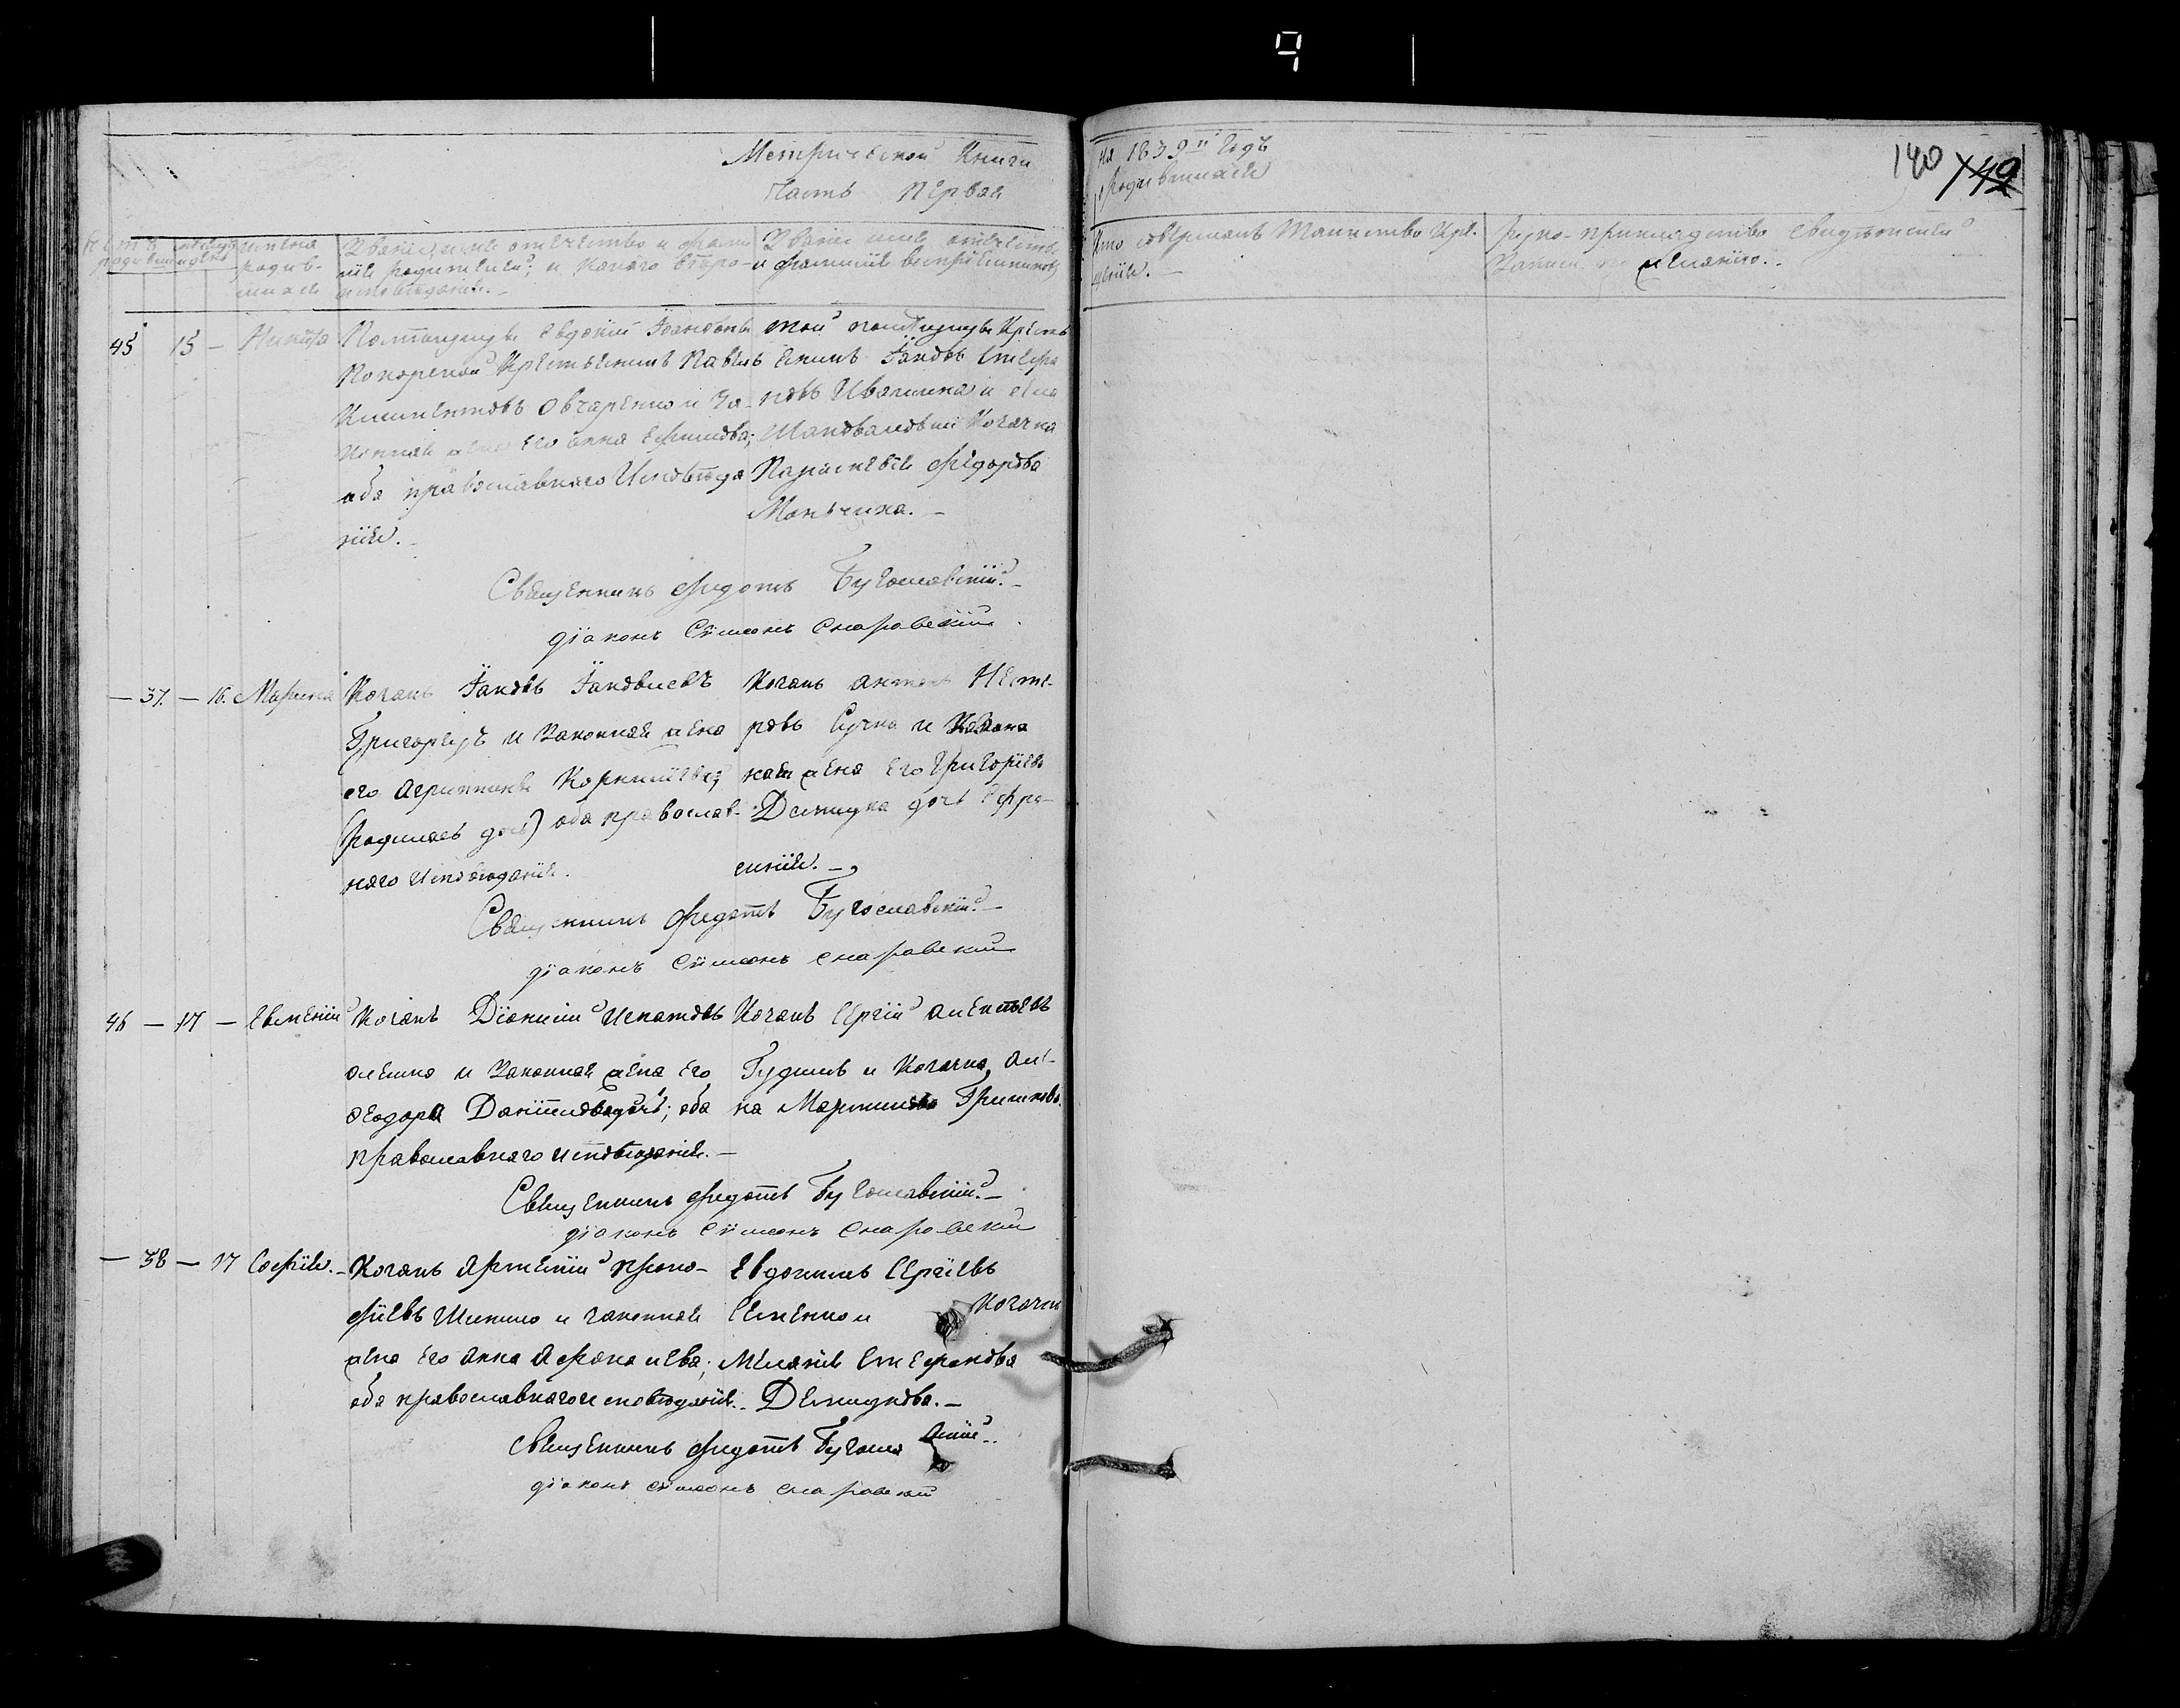 Метрической Книги
Часть Первая
на 1839й Годъ
о Родившихся
140 142
Счетъ родившихся
имена родив-шихся
Званіе, имя отечество и фами-
лія родителей, и какого вѣро-
исповѣданія.
Званіе имя, отечество
и фамилія воспріемниковъ
Кто совершалъ Таинство Кре-
щенія.
Руко-прикладство свидѣтелей
Записи по желанію.
45 15 – Никита Помѣщицы Евдокіи Іоановны
Крестьянинъ Павелъ
Климентовъ Овчаренко и За-
конная жена его Анна Ефимова;
оба православнаго Исповѣда
нія.
той помѣщицы Крестъ
янинъ Іаковъ Стефа
новъ Ивашина и
Козачка
Параскевія Федорова
Священникъ Федотъ Бугославскій.
діаконъ Сѵмеонъ Снаровскій
– 37. – 16. Марина Козакъ Іаковъ Іаковлевъ
Григорецъ и Законная жена
его Агриппина Корниліева;
(родилась дочь) оба православ-
наго Исповѣданія.
Козакъ Антонъ Несте-
ровъ Сучка и Козака
жена его Григорія
Демидка дочь Ефро-
синія.
Священникъ Федотъ Бугославскій.
діаконъ Сѵмеонъ Снаровскій
46 – 17 – Евменій Козакъ Діонисій Игнатовъ
Олешко и Законная жена его
Феодора Даніилова дочь; оба
православнаго исповѣданія.
Козакъ Сергій Алексѣевъ
и Козачка Ан-
на Мартинова
Священникъ Федотъ Бугославскій.
діаконъ Сѵмеонъ Снаровскій
– 38 – 17 Софія. Козакъ Артемій Проко-
фіевъ Шинко и законная
жена его Анна Афанасиева;
оба православнаго исповѣданія.
Евдокимъ Сергіевъ
Семенко и Козачка
Меланія Стефанова
Демидкова.
Священникъ Федотъ Бугосла
діаконъ Сѵмеонъ Снаровскій